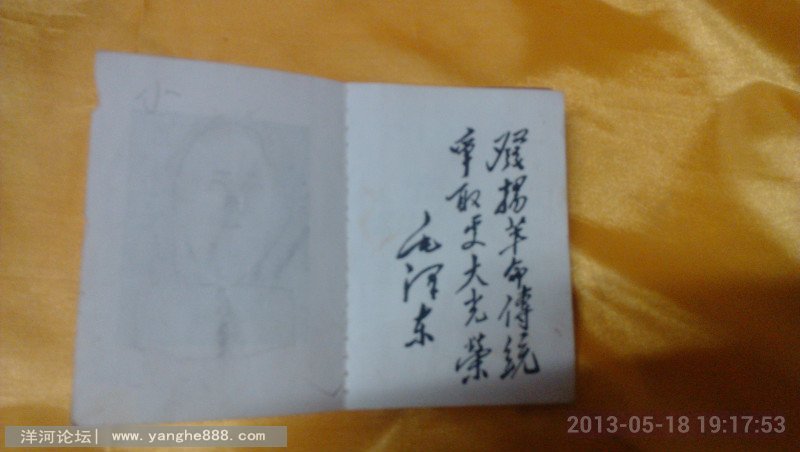 发揚革命傳統
爭取更大光荣
毛泽东
2013-05-18 19:17:53
洋河论坛| www.yanghe888.com